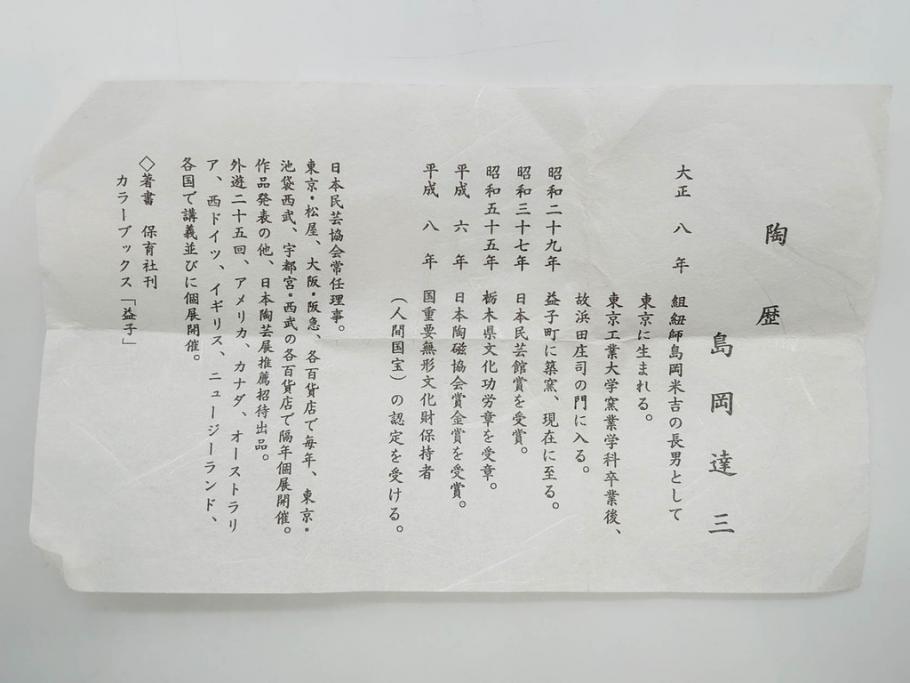 陶歴
島岡達三
大正八年 組紐師島岡米吉の長男として
東京に生まれる。
東京工業大学窯業学科卒業後、
故浜田庄司の門に入る。
昭和二十九年 益子町に築窯、現在に至る。
昭和三十七年 日本民芸館賞を受賞。
昭和五十五年 栃木県文化功労章を受章。
平成六年 日本陶磁協会賞金賞を受賞。
平成八年 国重要無形文化財保持者
(人間国宝)の認定を受ける。
日本民芸協会常任理事。
東京・松屋、大阪・阪急、各百貨店で毎年、東京・
池袋西武、宇都宮・西武の各百貨店で隔年個展開催。
作品発表の他、日本陶芸展推薦招待出品。
外遊二十五回、アメリカ、カナダ、オーストラリ
ア、西ドイツ、イギリス、ニュージーランド、
各国で講義並びに個展開催。
◇著書 保育社刊
カラーブックス「益子」